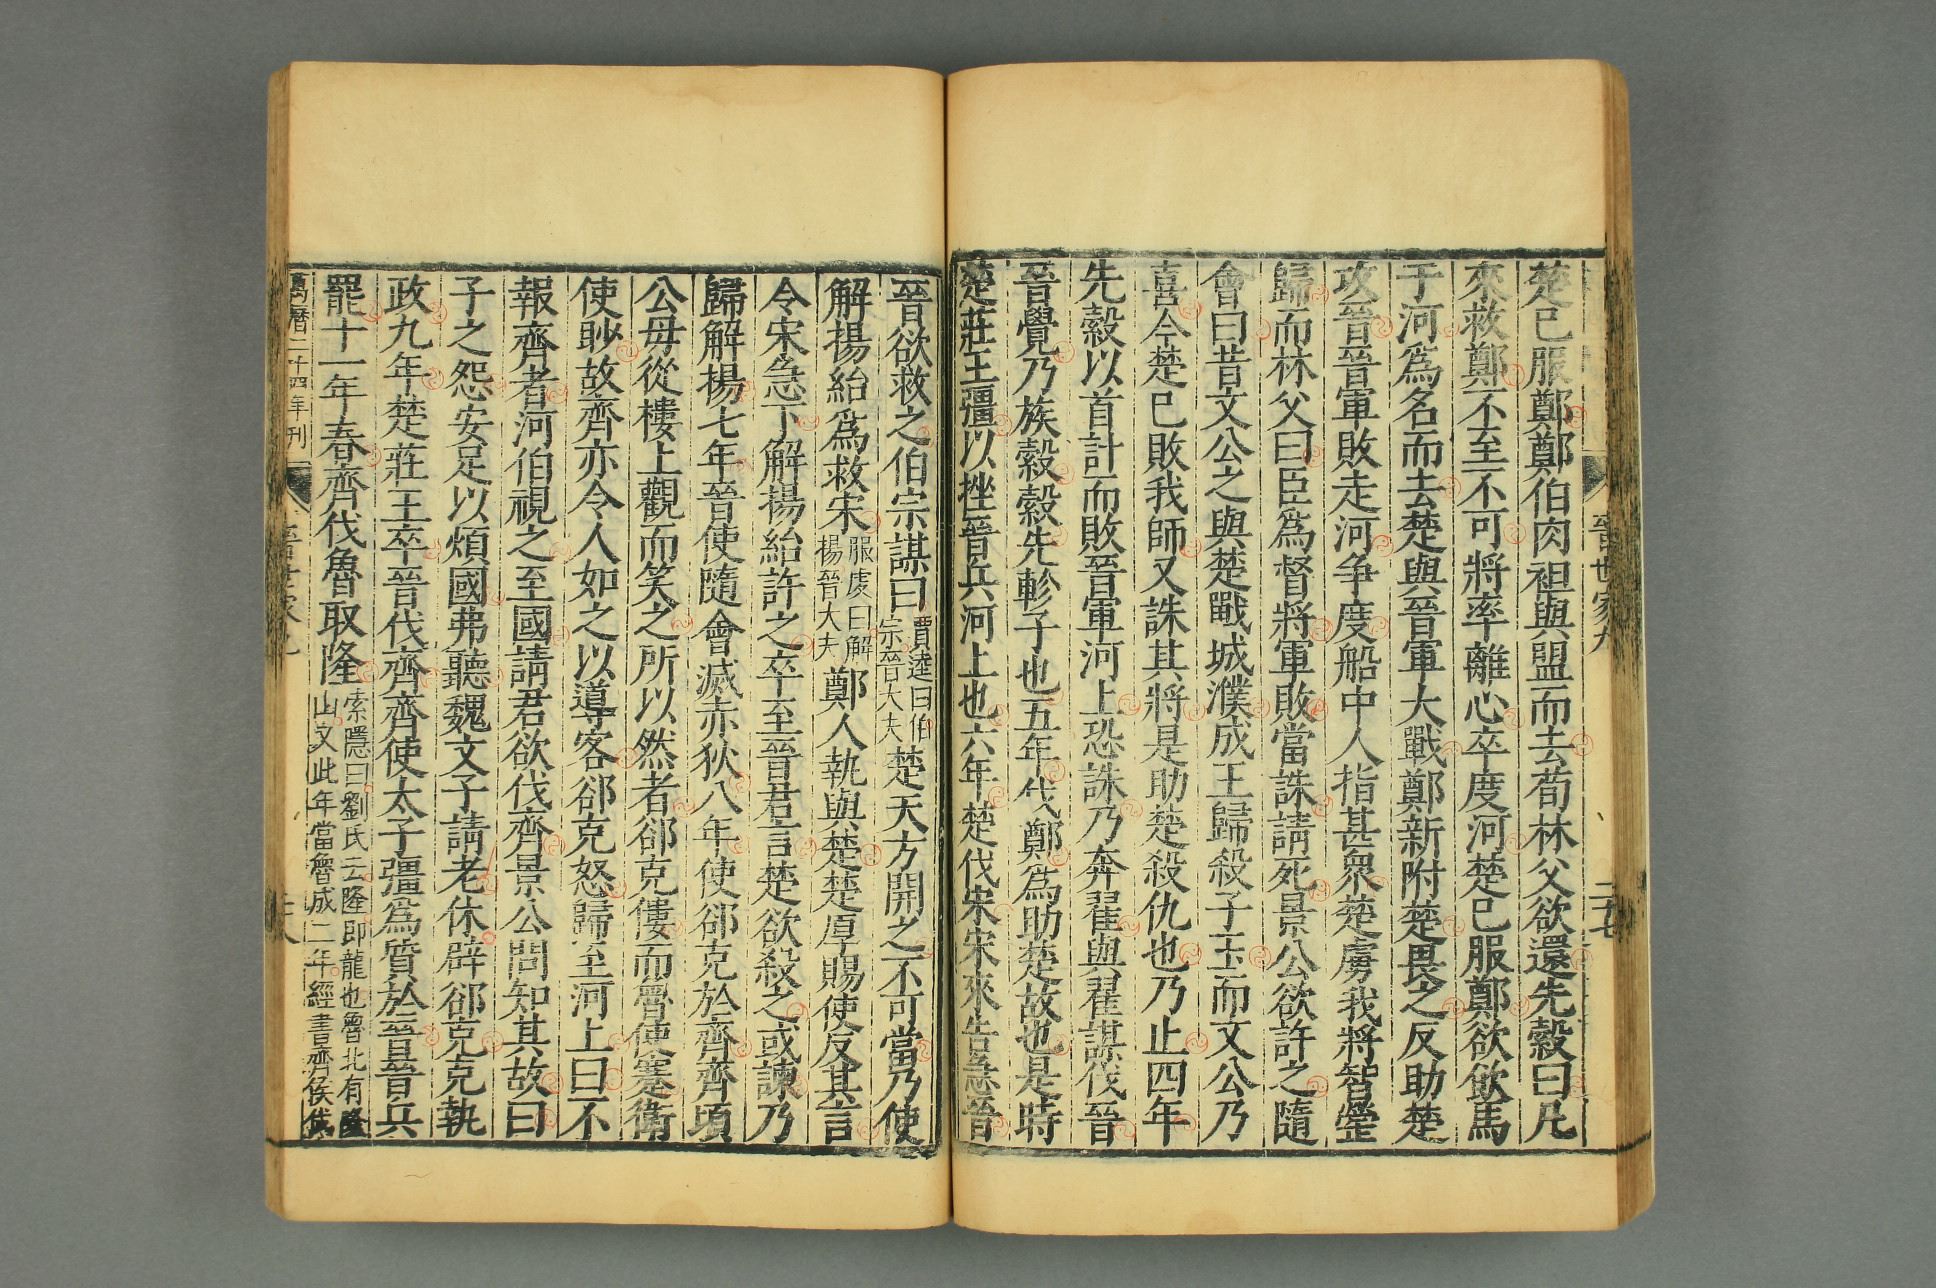 楚已服鄭鄭伯肉袒與盟而去荀林父欲還先縠曰凡
來救鄭不至不可將率離心卒度河楚已服鄭欲飲馬
于河爲名而去楚與晉軍大戰鄭新附楚畏之反助楚
攻晉晉軍敗走河爭度船中人指甚衆楚虜我將智罃
歸而林父曰臣爲督將軍敗當誅請死景公欲許之隨
會曰昔文公之與楚戰城濮成王歸殺子玉而文公乃
喜今楚已敗我師又誅其將是助楚殺仇也乃止四年
先縠以首計而敗晉軍河上恐誅乃奔翟與翟謀伐晉
晉覺乃族縠縠先軫子也五年伐鄭爲助楚故也是時
楚莊王彊以挫晉兵河上也六年楚伐宋宋來告急晉
晉世家九
二十七
晉欲救之伯宗謀曰賈逵曰伯宗晉大夫楚天方開之不可當乃使
解揚紿爲救宋服虔曰解揚晉大夫鄭人執與楚楚厚賜使反其言
令宋急下解揚紿許之卒至晉君言楚欲殺之或諫乃
歸解楊七年晉使隨會滅赤狄八年使郤克於齊齊頃
公母從樓上觀而笑之所以然者郤克僂而魯使蹇衛
使眇故齊亦令人如之以導客郤克怒歸至河上曰不
報齊者河伯視之至國請君欲伐齊景公問知其故曰
子之怨安足以煩國弗聽魏文子請老休辟郤克克執
政九年楚莊王卒晉伐齊齊使太子彊爲質於晉晉兵
罷十一年春齊伐魯取隆索隱曰劉氏云隆即龍也魯北有隆山又此年當魯成二年經書齊侯伐
萬曆二十四年刊